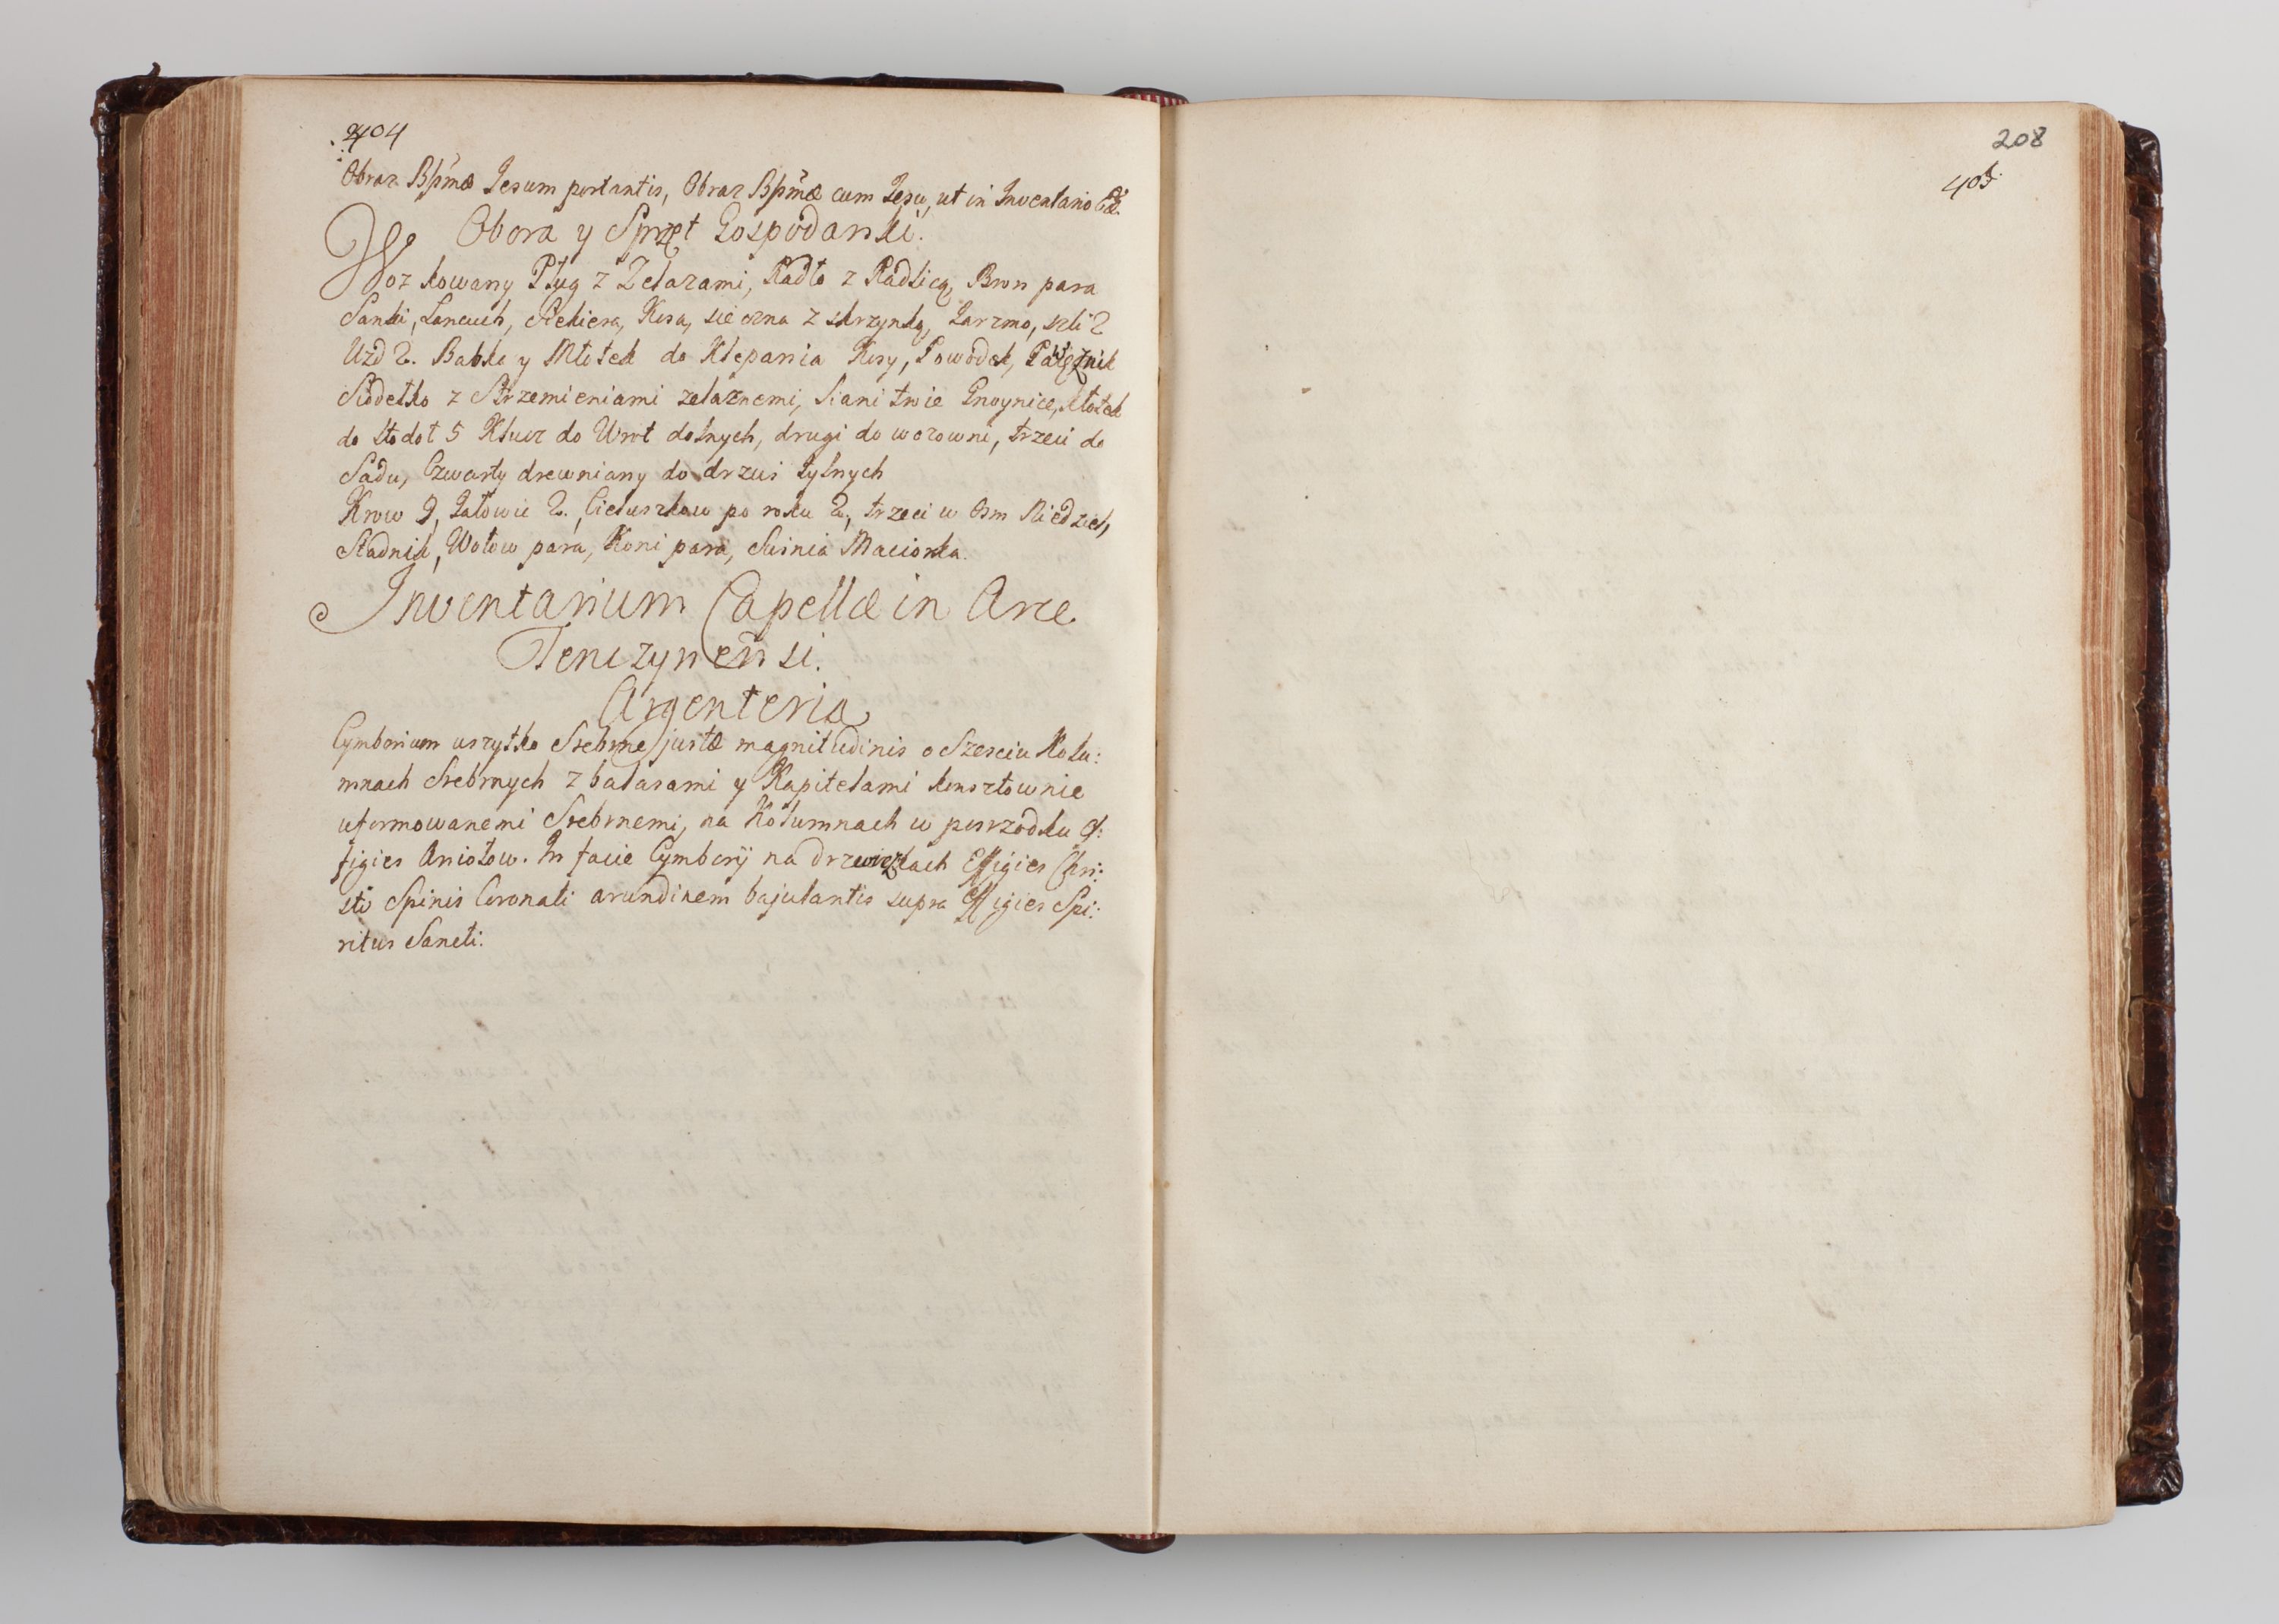 404
Obraz Bṕmæ Jesum portantis, Obraz Bṕmæ cum Jesu, ut in Inventario
Obora y Sprzęt Gospodarski.
Woz kowany Pług z Zelazami, Radło z Radlicą, Bron para
Sanki, Lancuch, Siekiera, Kosa, sieczna z skrzynką, Jarzmo, szli 2
Uzd 2. Babka y Młotek do Klepania Kosy, Powodek, Pawęznik
Siodełko z Strzemieniami zelaznemi, Gnoynice,
do stodoł 5 Klucz do Wrot dolnych, drugi do wozowni, trzeci do
Sadu, Czwarty drewniany do drzwi tylnych
Krow 9, Jałowic 2. Cieluszkow po roku 2, trzeci w Osm Niedziel,
Stadnik, Wołow para, Koni para, Swinia Maciorka.
Inventarium Capellæ in Arce
Tenczynensi.
Argenteria
Cymborium wszytko Srebrne justæ magnitudinis o Szesciu Kolu:
mnach Srebrnych z balasami y Kapitelami konsztownie
uformowanemi Srebrnemi, na Kolumnach w poszrodku Ef:
figies Aniołow. In facie Cymborij na drzwiczkach Effigies Chri:
sti Spinis Coronati arundinem bajulantis supra Effigies Spi:
ritus Sancti.
208
405.